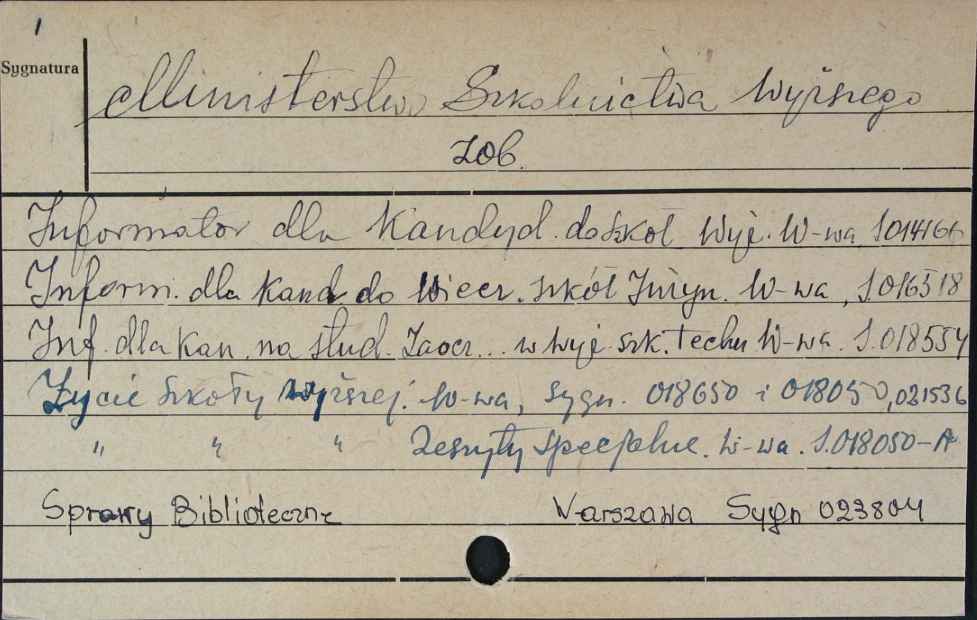 1
Sygnatura
Ministerstwo Szkolnictwa Wyższego
zob.
Informator dla Kandyd. do szkół Wyż. W-wa S.014166
Inform. dla kand do Wiecz. szkół Inżyn. W-wa, S.016518
Inf. dla kan. na stud. Zaocz... w wyż. szk. techn W-wa. S.018554
Życie szkoły wyższej. W-wa, sygn. 018650 i 018050, 021536
" " " Zeszyty specjalne. W-wa. S.018050-A
Sprawy Biblioteczne Warszawa Sygn 023804